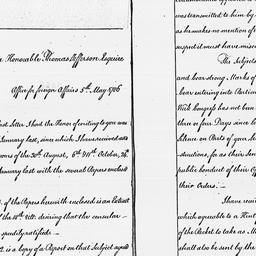 Honorable Thomas Jefferson Esquire
Office for foreign Affairs 5th May 1786
last Letter I had the Honor of writing to you was
January last, since which I have received
yours of the 20th August, 6th & 11th October, 24th
January last with the several Papers enclosed
of the Papers herewith enclosed is an Extract
of the 10th Ult: desiring that the consular
speedily ratified. —
2. is a Copy of a Report on that Subject agreed
was transmitted to him by
as he makes no mention of
suspect it must have mis
The Subjects
and bear strong Marks of
bear entering into Particu
With Congress has not been
three or four Days since
Silence on Parts of your
structions, for as their Ser
public conduct of their
their Orders. —
I have recei
which agreeable to a Hint
of the Packet to take as
shall also be sent by the